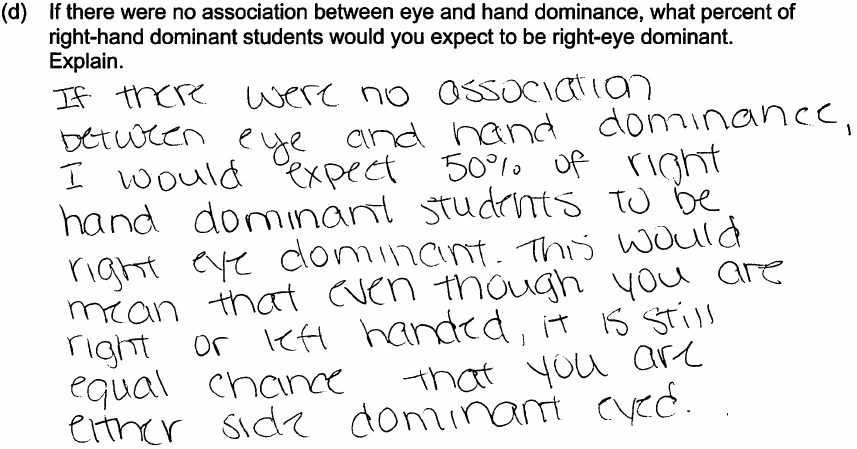 (d) If there were no association between eye and hand dominance, what percent of
right-hand dominant students would you expect to be right-eye dominant.
Explain.
If there were no association
between eye and hand dominance,
I would expect 50% of right
hand dominant students to be
right eye dominant. This would
mean that even though you are
right or left handed, it is still
equal chance that you are
either side dominant eyed.